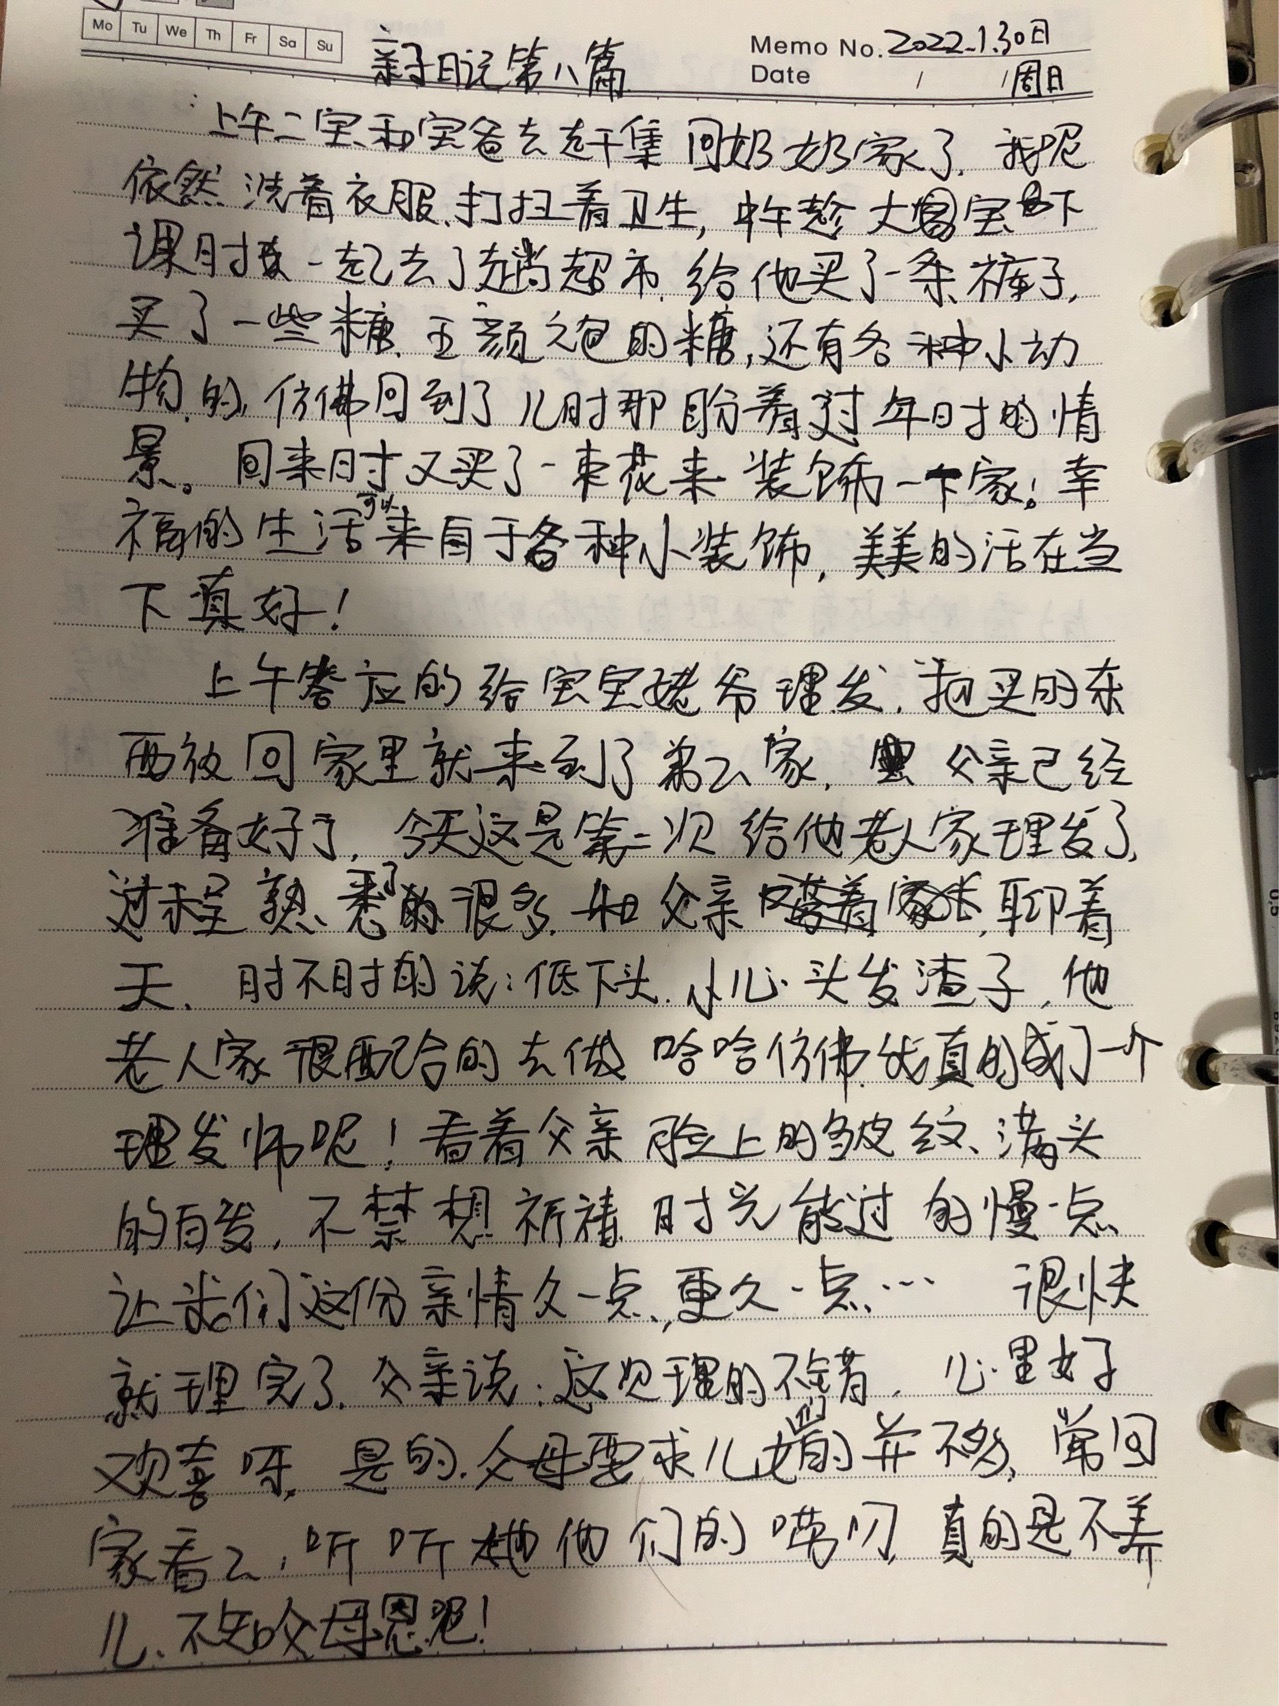 Mo Tu We Th Fr Sa Su
Memo No. 2022.1.30日
亲子日记第八篇
Date / / 周日
上午二宝和宝爸去赶集回奶奶家了.我呢
依然洗着衣服.打扫着卫生,中午趁大宝下
课时一起去了趟超市.给他买了一条裤子,
买了一些糖.五颜六色的糖,还有各种小动
物的,仿佛回到了儿时那盼着过年时的情
景。回来时又买了一束花来装饰一下家!幸
福的生活可以来自于各种小装饰,美美的活在当
下真好!
上午答应的给宝宝姥爷理发.把买的东
西放回家里就来到了弟弟家,父亲已经
准备好了,今天这是第二次给他老人家理发了,
过程熟悉了很多.和父亲唠着家长,聊着
天.时不时的说:低下头.小心头发渣子,他
老人家很配合的去做 哈哈仿佛我真的成了一个
理发师呢!看着父亲脸上的皱纹、满头
的白发,不禁想祈祷时光能过的慢一点
让我们这份亲情久一点,更久一点… 很快
就理完了.父亲说:这次理的不错.心里好
欢喜呀.是的.父母要求儿女们的并不多,常回
家看看,听听他们的唠叨,真的是不养
儿、不知父母恩呢!